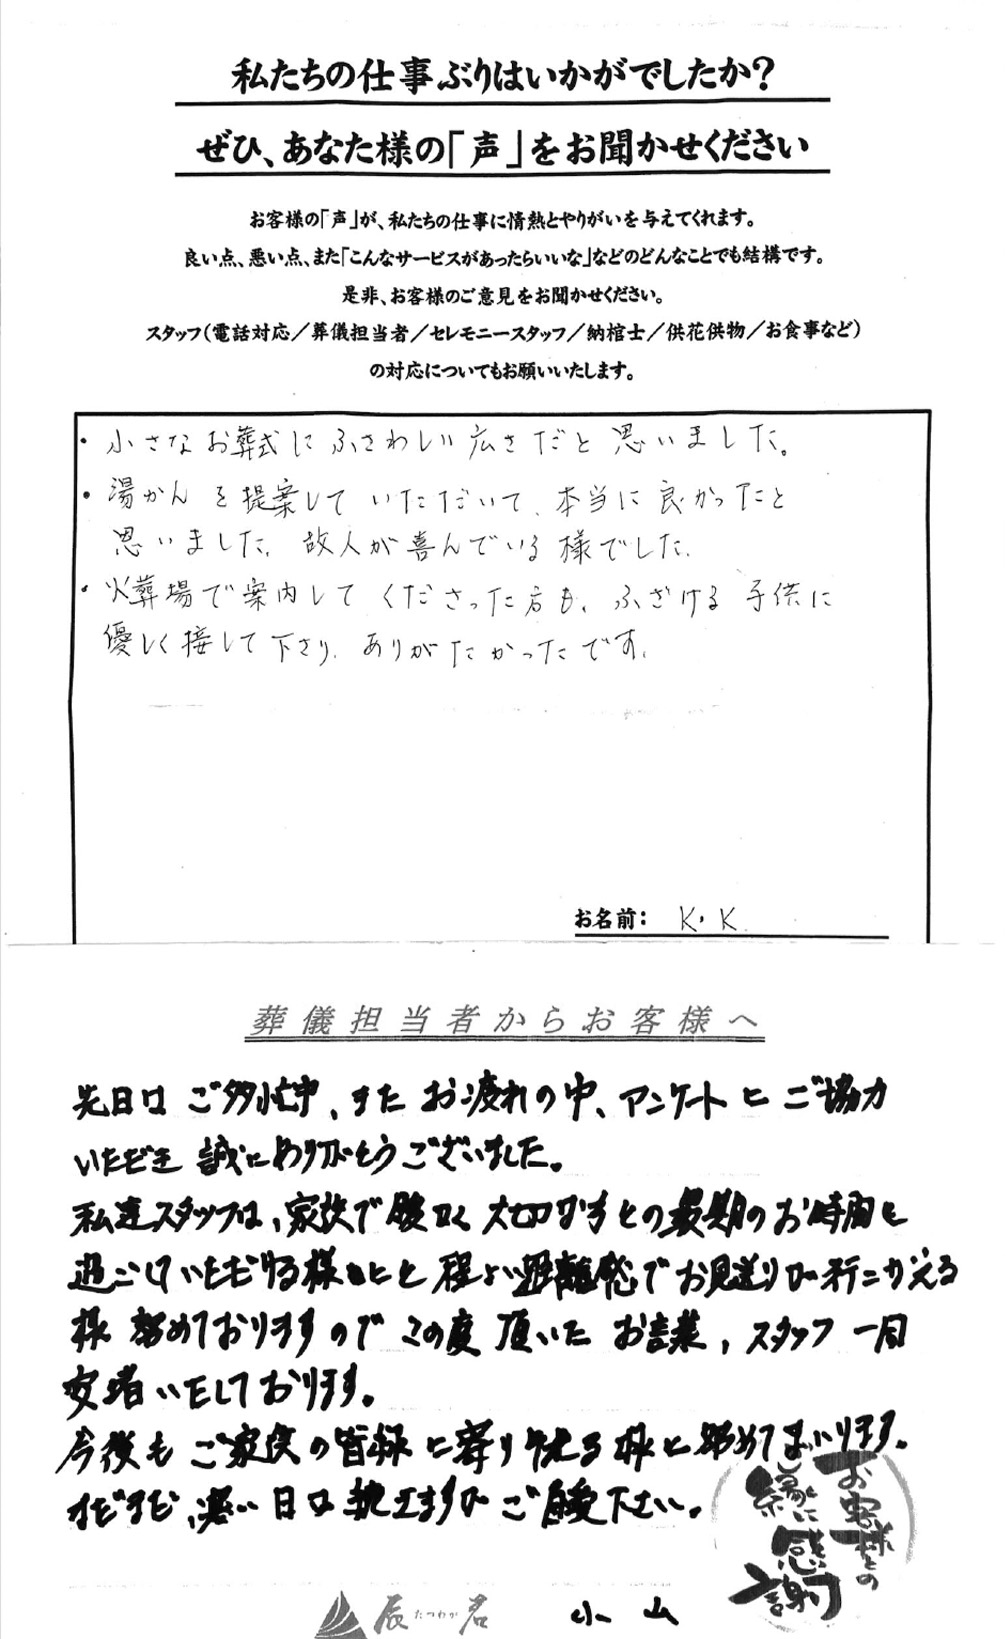 私たちの仕事ぶりはいかがでしたか？
ぜひ、あなた様の「声」をお聞かせください
お客様の「声」が、私たちの仕事に情熱とやりがいを与えてくれます。
良い点、悪い点、また「こんなサービスがあったらいいな」などのどんなことでも結構です。
是非、お客様のご意見をお聞かせください。
スタッフ（電話対応／葬儀担当者／セレモニースタッフ／納棺士／供花供物／お食事など）
の対応についてもお願いいたします。
・小さなお葬式にふさわしい広さだと思いました。
・湯かんを提案していただいて、本当に良かったと
思いました。故人が喜んでいる様でした。
・火葬場で案内してくださった方も、ふざける子供に
優しく接して下さり、ありがたかったです。
お名前： K・K
葬儀担当者からお客様へ
先日はご多忙中、またお疲れの中、アンケートにご協力
いただき誠にありがとうございました。
私達スタッフは、家族で暖かく大切な方との最期のお時間を
過ごしていただける様 程よい距離感でお見送りが行なえる
様努めておりますのでこの度頂いたお言葉、スタッフ一同
安堵いたしております。
今後もご家族の皆様に寄り添える様に努めてまいります。
まだまだ、 日は ますので ご自愛下さい。
お客様との
ご縁に
感謝
辰君
たつわか
小山